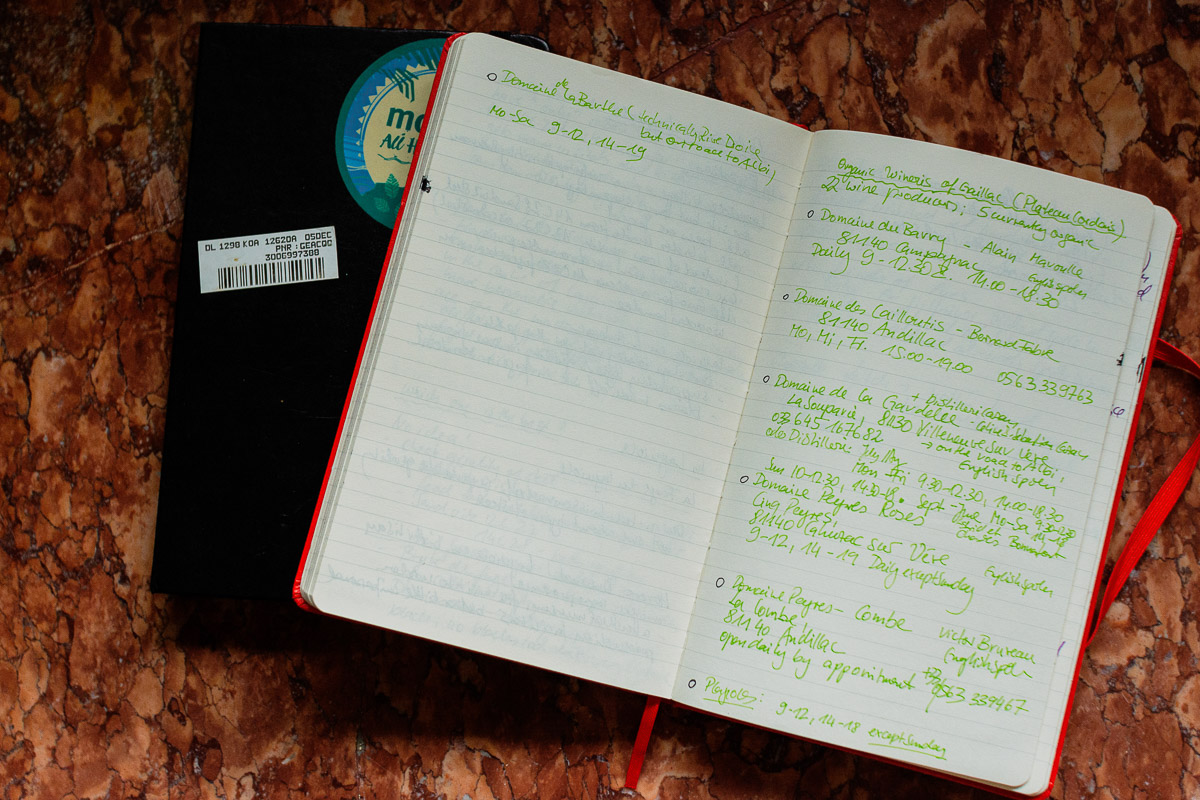 DL 1298 KOA 12G20A 05DEC
PNR : GEACQC
3006997388
o Domaine de la Barthe (technically Rive Droite
but on road to Albi)
Mo-Sa 9-12, 14-19
Organic Wineris of Gaillac (Plateau Cordais)
22 wine producers; 5 currently organic
o Domaine du Barry - Alain
81140 Campagnac English spoken
Daily 9-12.30 14.00-18.30
o Domaine des Cailloutis - Bernard Fabre
81140 Andillac
Mo, Mi, Fr. 15:00-19.00 0563339763
+ Distillerie Cazay
o Domaine de la Gardelle - Sebastien Cazay
La Souparie, 81130 Villeneuve sur Vère
033645167682 → on the road to Albi;
Distillerie: English spoken
Mon Fri 9.30-12.30, 14.00-18.30
Sun 10-12.30, 14.30-18. Sept-June Mo-Sa 9.30-12.30
14-18
o Domaine Peyres Roses
Cinq Peyres, Charles Bonnafont
81140 Cahuzac sur Vère English spoken
9-12, 14-19 Daily except Sunday
o Domaine Peyres-Combe Victor Brureau
La Combe, English spoken
81140 Andillac
open daily by appointment 0563 339467
o Plageoles: 9-12, 14-18 except Sunday